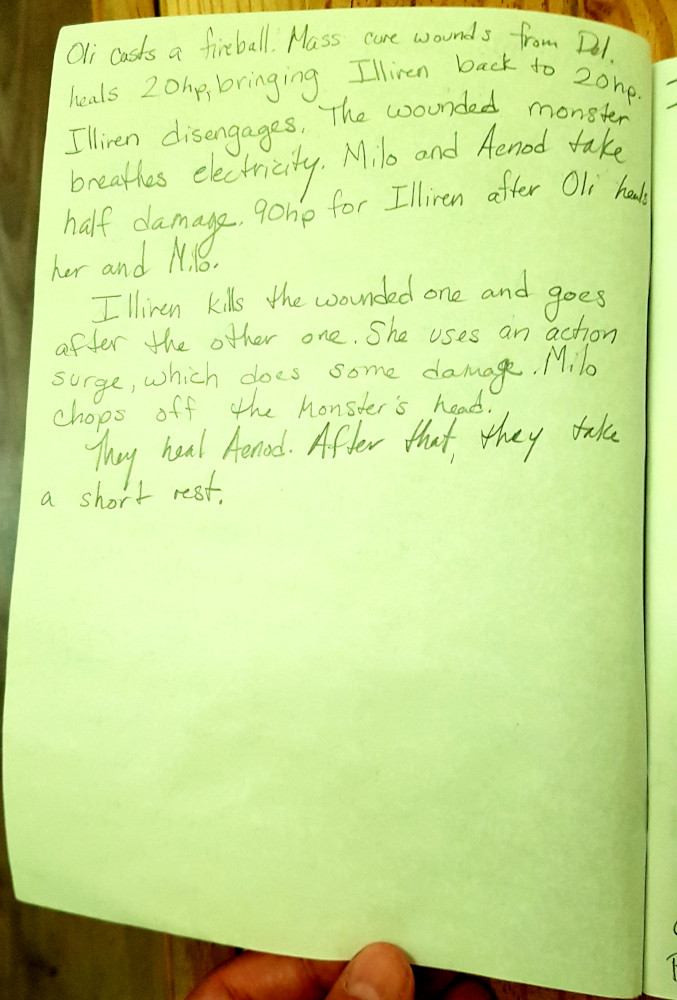 Oli casts a fireball. Mass cure wounds from Del.
heals 20hp, bringing Illiren back to 20hp.
Illiren disengages. The wounded monster
breathes electricity. Milo and Aenod take
half damage. 90hp for Illiren after Oli heals
her and Milo.
Illiren kills the wounded one and goes
after the other one. She uses an action
surge, which does some damage. Milo
chops off the monster's head.
They heal Aenod. After that, they take
a short rest.